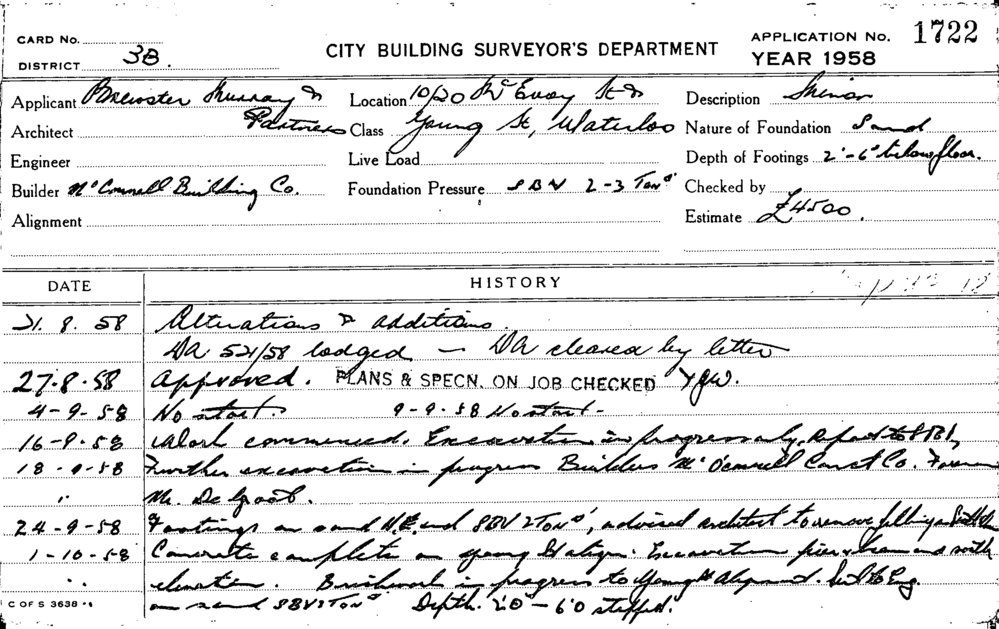 CARD No.
DISTRICT 3B.
CITY BUILDING SURVEYOR'S DEPARTMENT
APPLICATION No. 1722
YEAR 1958
Applicant Brewster Murray &
Partners
Location 10/20 McEvoy St &
Description
Architect
Class Young St, Waterloo
Nature of Foundation Sand
Engineer
Live Load
Depth of Footings 2'-6" below floor.
Builder McConnell Building Co.
Foundation Pressure SBV 2-3 Tons
Checked by
Alignment
Estimate £4500.
DATE
HISTORY
21. 8. 58 Alterations & additions.
DA 521/58 lodged — DA cleared by letter
27.8.58 Approved. PLANS & SPECN. ON JOB CHECKED
4-9-58 No start. 9-9-58 No start-
16-9-58 Work commenced. Excavation in progress only.
18-9-58 Further excavation in progress Builders Const Co. Foreman
" Mr. De Groot.
24-9-58 Footings on sand end SBV 2 Tons, advised architect to remove filling
1-10-58 Concrete complete on Young St Excavation pier & beam and south
" elevation. Brickwork in progress to Young St
on sand SBV 3 Tons Depth. 2'0 - 6'0 stepped.
C OF S 3638